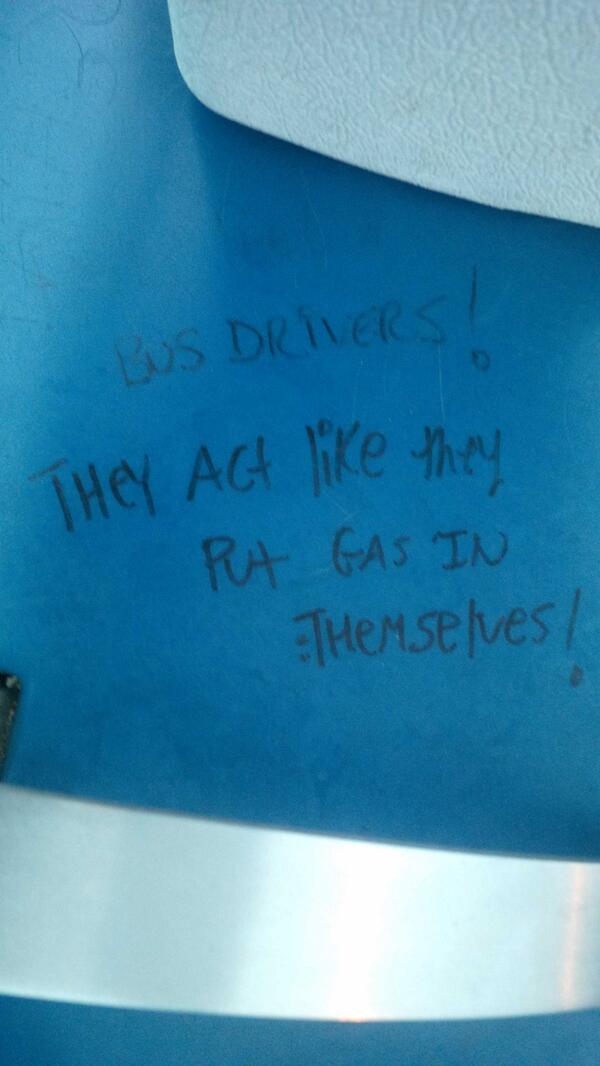 BUS DRIVERS!
THEY ACt liKe they
Put GAS IN
:THEMSelves!